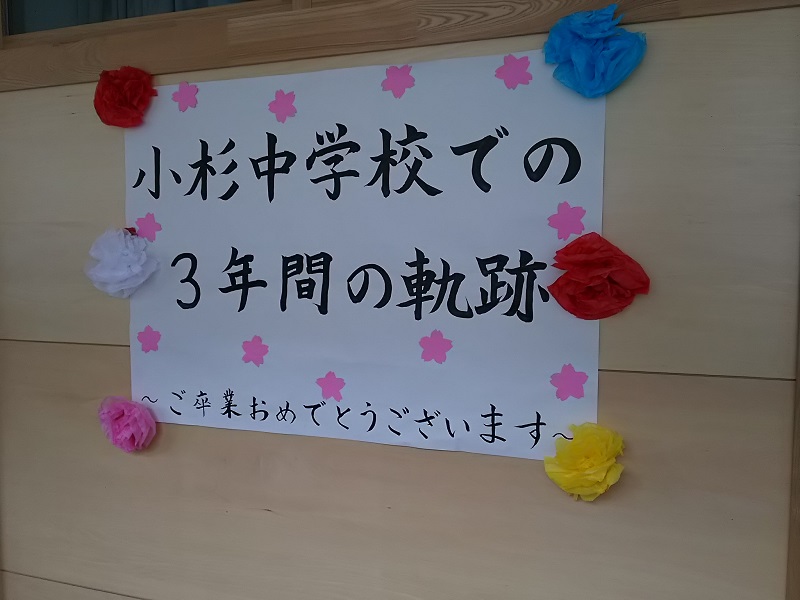 小杉中学校での
3年間の軌跡
~ご卒業おめでとうございます~